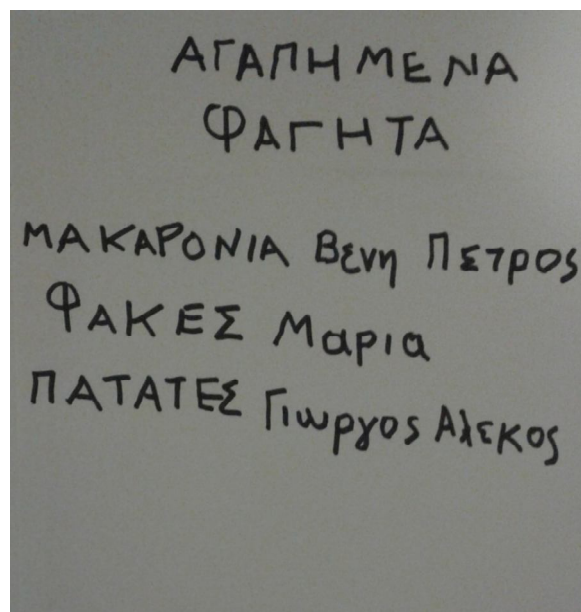 ΑΓΑΠΗΜΕΝΑ
ΦΑΓΗΤΑ
ΜΑΚΑΡΟΝΙΑ Βενη Πετρος
ΦΑΚΕΣ Μαρια
ΠΑΤΑΤΕΣ Γιωργος Αλεκος